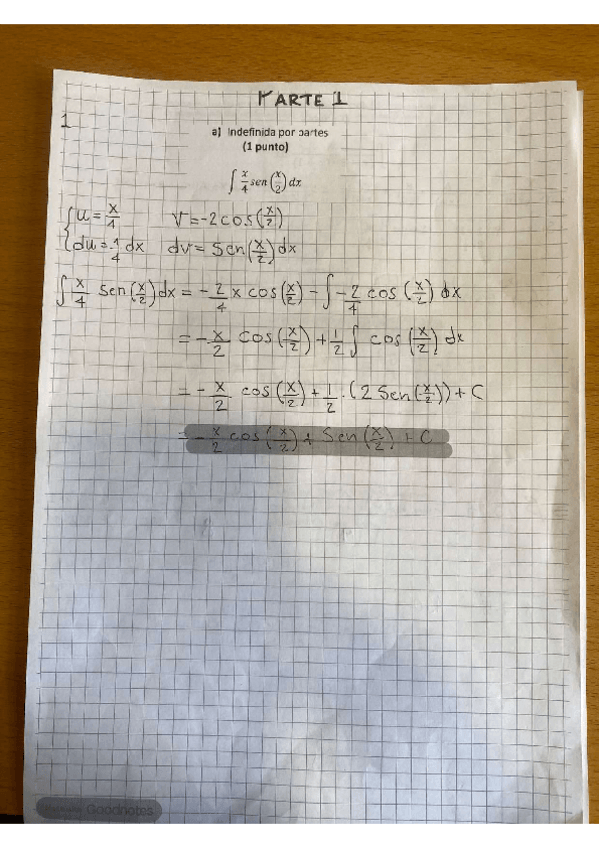 PARTE 1
1
a) Indefinida por partes
(1 punto)
∫ x/4 sen (x/2) dx
{ u = x/4 v = -2 cos (x/2)
{ du = 1/4 dx dv = Sen (x/2) dx
∫ x/4 Sen (x/2) dx = - 2/4 x cos (x/2) - ∫ - 2/4 cos (x/2) dx
= - x/2 cos (x/2) + 1/2 ∫ cos (x/2) dx
= - x/2 cos (x/2) + 1/2 · (2 Sen (x/2)) + C
= - x/2 cos (x/2) + Sen (x/2) + C
Goodnotes